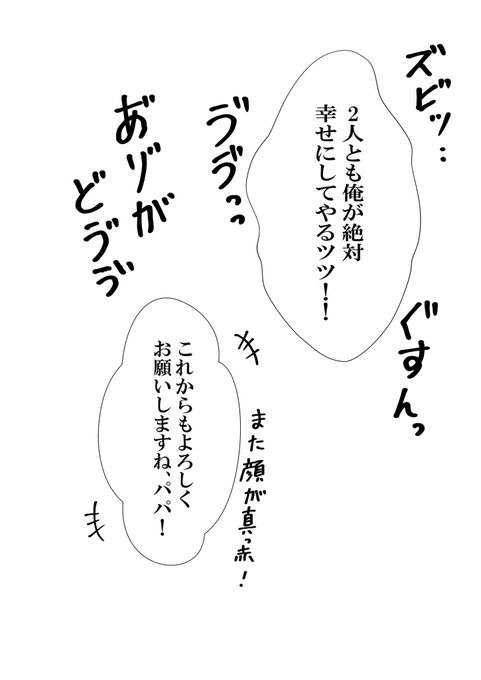 ズビッ…
2人とも俺が絶対
幸せにしてやるツツ！！
ぐすんっ
ゔゔっっ
あ゙り゙が
どゔゔ
また顔が真っ赤！
これからもよろしく
お願いしますね、パパ！